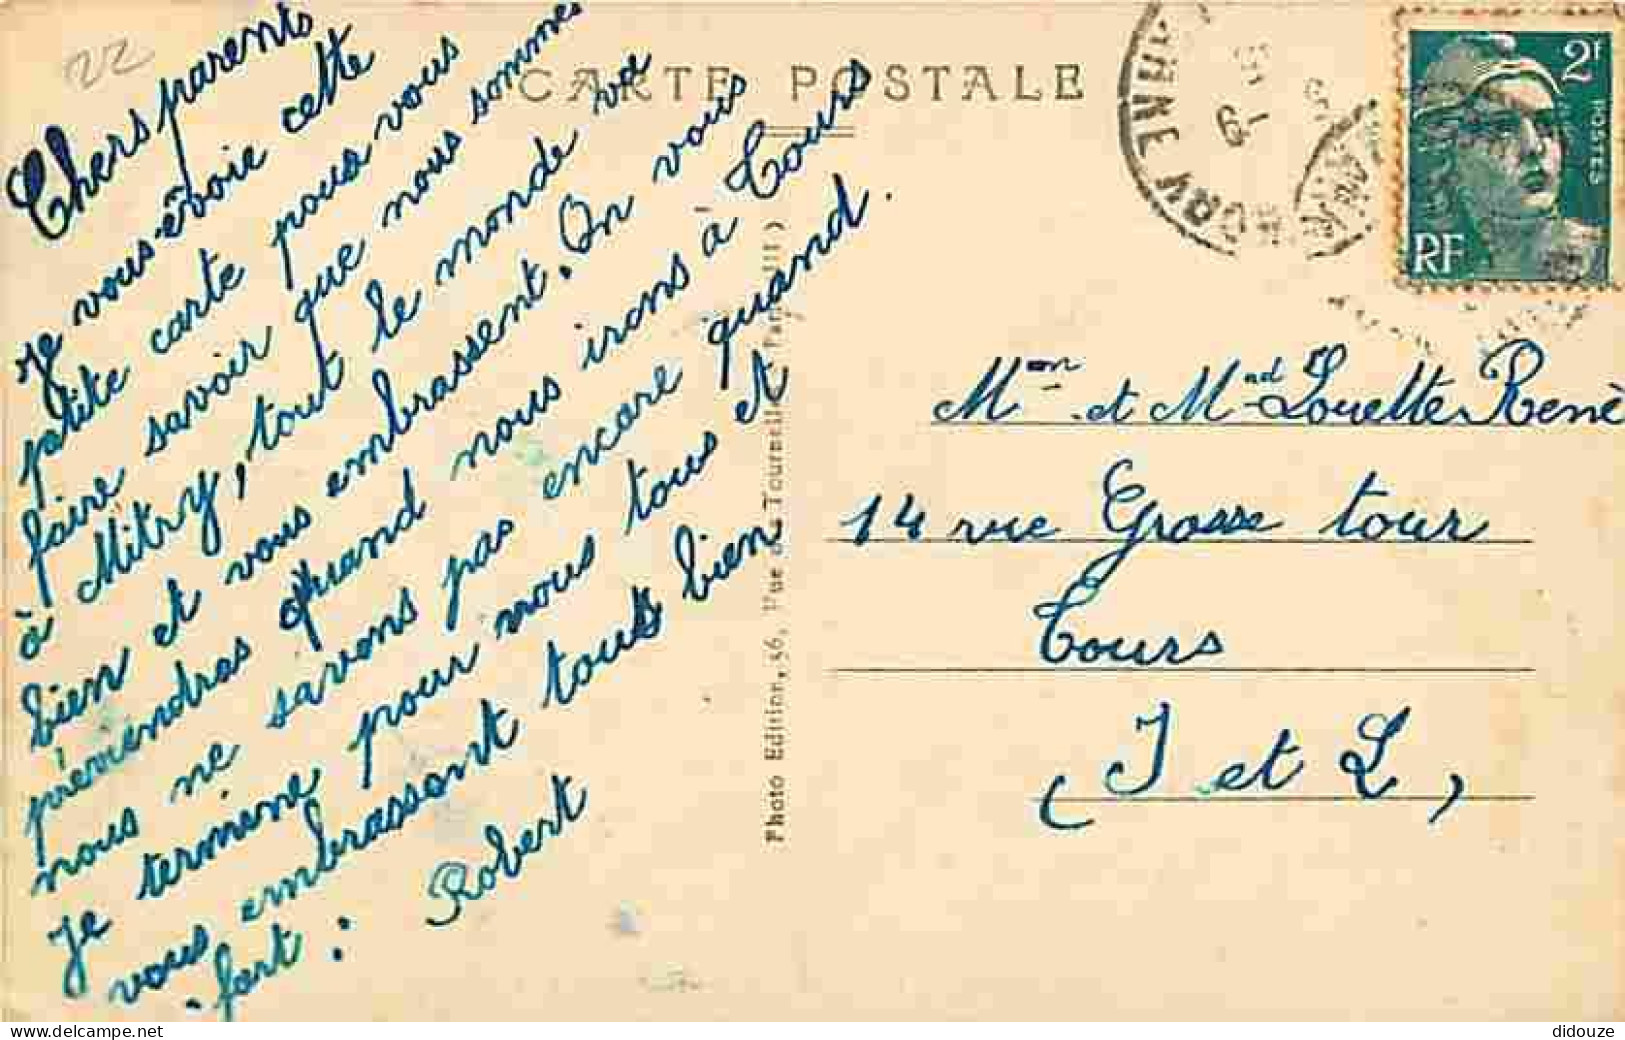 22
CARTE POSTALE
Chers parents
je vous évoie cette
patite carte pous vous
faire savoir que nous sommes
à Mitry, tout le monde va
bien et vous embrassent. On vous
préviendras quand nous irons à Tours
nous ne savons pas encore quand.
Je termine pour nous tous et
vous embrassont touts bien
fort : Robert
Photo Edition, 56, Rue de Tournelle, Paris (III)
2f
POSTES
RF
Mon et Mad Louette René
14 rue Grosse tour
Tours
( I et L )
www.delcampe.net
didouze